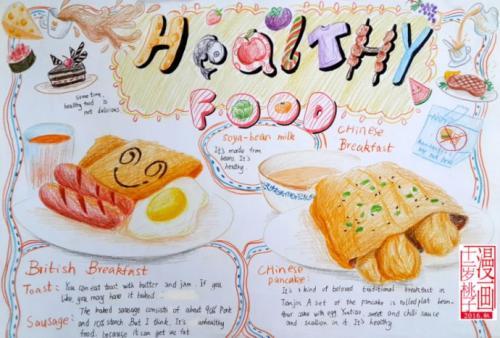 HEALTHY
FOOD
some time,
healthy food is
not delicious
soya-bean milk
It's made from
beans. It's
healthy
CHinese
Breakfast
British Breakfast
Toast: You can eat toast with butter and jam. If you
like, you may have it baked.
Sausage: The baked sausage consists of about 90% Pork
and 10% starch. But I think, It's unhealthy
food, because it can get me fat
Chinese
pancake:
It's a kind of beloved traditional breakfast in
Tianjin. A set of the pancake is rolled plat bean-
flour cake with egg, Youtiao, sweet and chili sauce
and scallion in it. It's healthy
漫画
十岁桃子
2016.秋